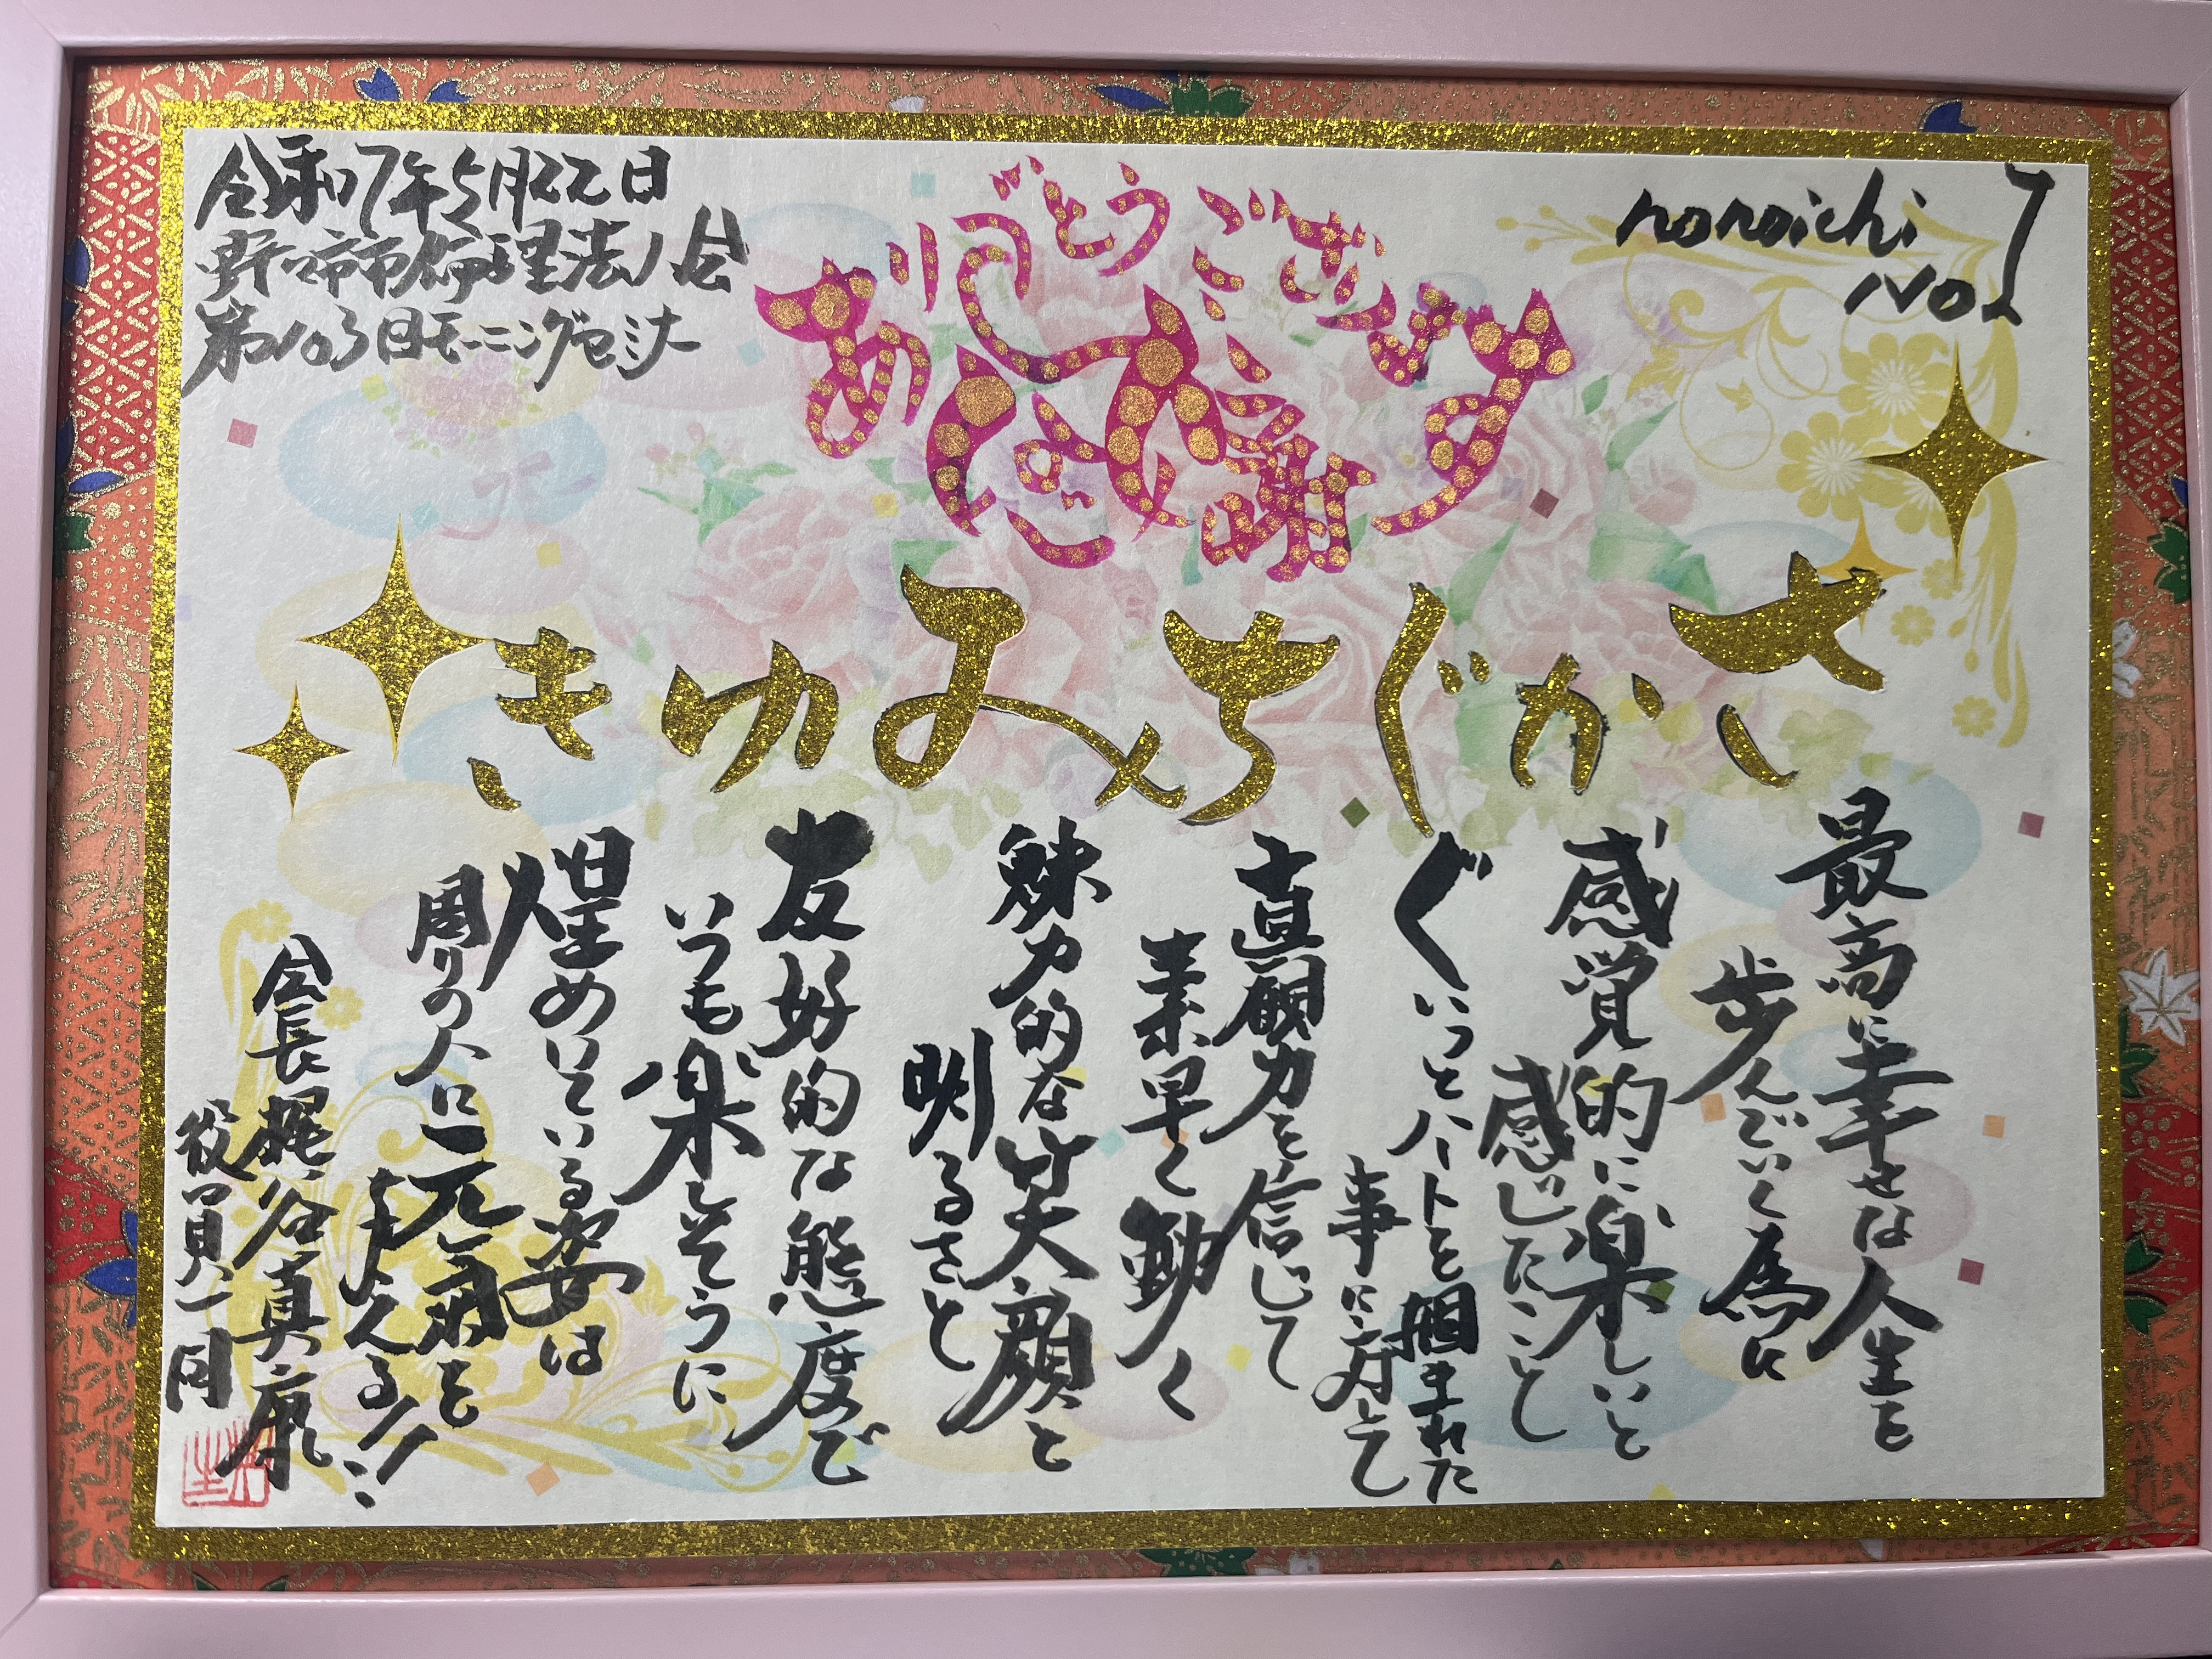 令和7年5月22日
野々市市倫理法人会
第103回モーニングセミナー
ありがとうございます
大感謝
nonoichi
No1
さかぐちみゆき
最高に幸せな人生を
歩んでいく為に
感覚的に楽しいと
感じたことして
ぐいっとハートを掴まれた
事に対して
直観力を信じて
素早く動く
魅力的な笑顔と
明るさと
友好的な態度で
いつも楽しそうに
煌めいている姿は
周りの人に元気を
与える!!
会長 梶谷真康
役員一同